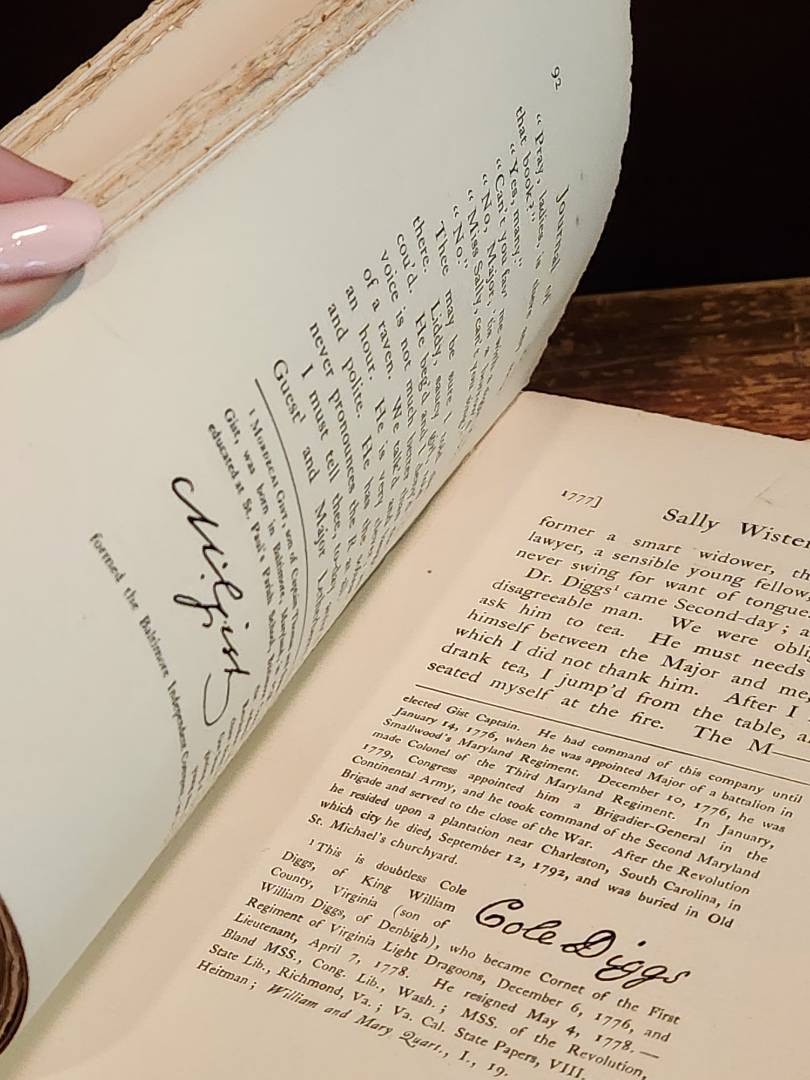 92
Journal of
"Pray, ladies, is there
that book?"
"Yes, many."
"Can't you fav me
"No, Major,
"Miss Sally, can't you
"No."
Thee may be sure I
there. Liddy, saucy
cou'd. He beg'd and I
voice is not much better than
of a raven. We talk'd
an hour. He is very
and polite. He has the
never pronounces the R
I must tell thee, to-day
Guest¹ and Major
¹ MORDECAI GIST, son of Captain
Gist, was born in Baltimore,
educated at St. Paul's Parish School,
M: Gist
formed the Baltimore Independent
1777] Sally Wister
former a smart widower, th
lawyer, a sensible young fellow,
never swing for want of tongue.
Dr. Diggs¹ came Second-day; a
disagreeable man. We were obli
ask him to tea. He must needs
himself between the Major and me,
which I did not thank him. After I
drank tea, I jump'd from the table, a
seated myself at the fire. The M——
elected Gist Captain. He had command of this company until
January 14, 1776, when he was appointed Major of a battalion in
Smallwood's Maryland Regiment. December 10, 1776, he was
made Colonel of the Third Maryland Regiment. In January,
1779, Congress appointed him a Brigadier-General in the
Continental Army, and he took command of the Second Maryland
Brigade and served to the close of the War. After the Revolution
he resided upon a plantation near Charleston, South Carolina, in
which city he died, September 12, 1792, and was buried in Old
St. Michael's churchyard.
¹ This is doubtless Cole
Diggs, of King William
County, Virginia (son of
William Diggs, of Denbigh), who became Cornet of the First
Cole Diggs
Regiment of Virginia Light Dragoons, December 6, 1776, and
Lieutenant, April 7, 1778. He resigned May 4, 1778.—
Bland MSS., Cong. Lib., Wash.; MSS. of the Revolution,
State Lib., Richmond, Va.; Va. Cal. State Papers, VIII.
Heitman; William and Mary Quart., I., 19.